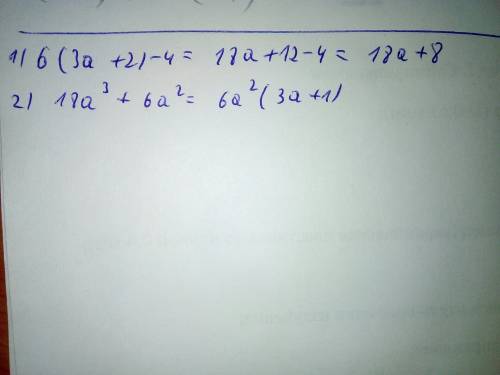 1) 6(3a+2)-4= 18a+12-4= 18a+8
2) 18a³+6a²= 6a²(3a+1)